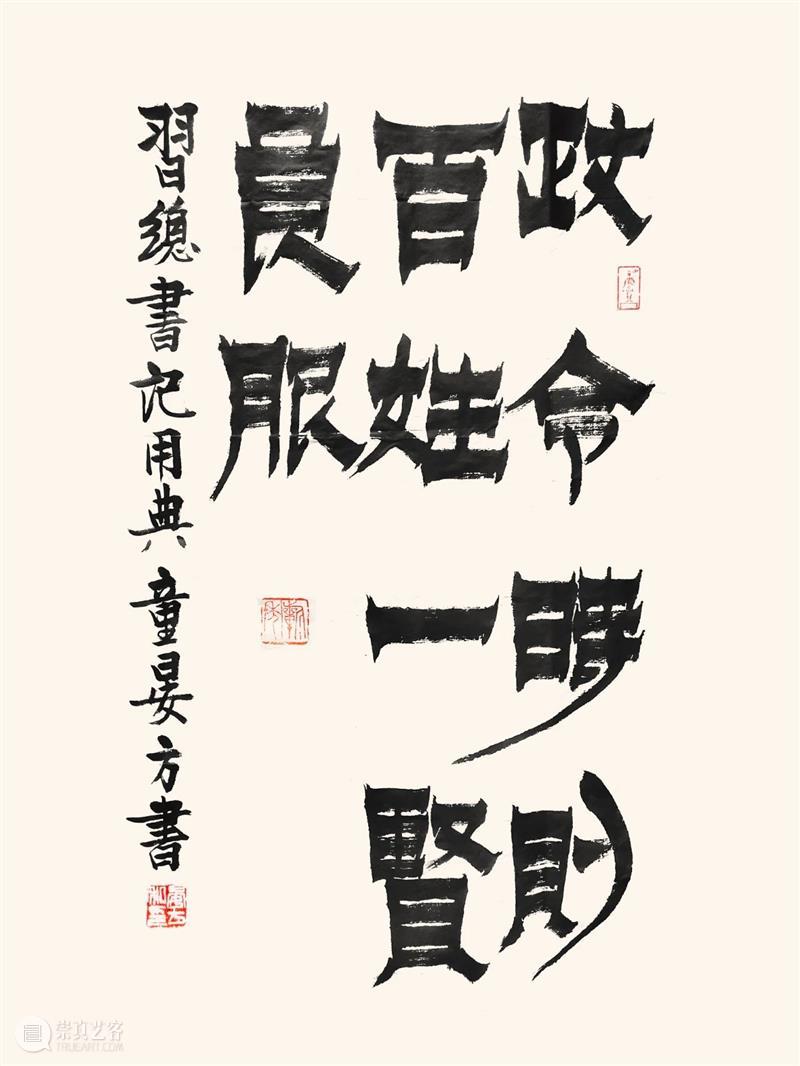 政令時則
百姓一賢
良服
習總書記用典 童晏方書
崇真艺客
TRUEART.COM